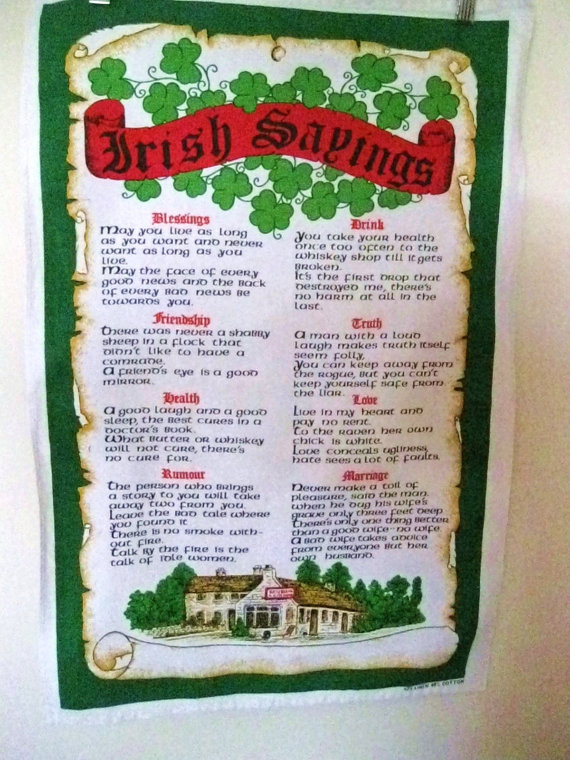 Irish Sayings
Blessings
May you live as long
as you want and never
want as long as you
live.
May the face of every
good news and the back
of every bad news be
towards you.
Friendship
There was never a shabby
sheep in a flock that
didn't like to have a
comrade.
A friend's eye is a good
mirror.
Health
A good laugh and a good
sleep, the best cures in a
doctor's book.
What butter or whiskey
will not cure, there's
no cure for.
Rumour
The person who brings
a story to you will take
away two from you.
Leave the bad tale where
you found it
There is no smoke with-
out fire.
Talk by the fire is the
talk of idle women.
Drink
You take your health
once too often to the
whiskey shop till it gets
broken.
It's the first drop that
destroyed me, there's
no harm at all in the
last.
Truth
A man with a loud
laugh makes truth itself
seem folly,
You can keep away from
the rogue, but you can't
keep yourself safe from
the liar.
Love
Live in my heart and
pay no rent.
To the raven her own
chick is white.
Love conceals ugliness,
hate sees a lot of faults.
Marriage
Never make a toil of
pleasure, said the man
when he dug his wife's
grave only three feet deep
There's only one thing better
than a good wife - no wife.
A bad wife takes advice
from everyone but her
own husband.
COTTON